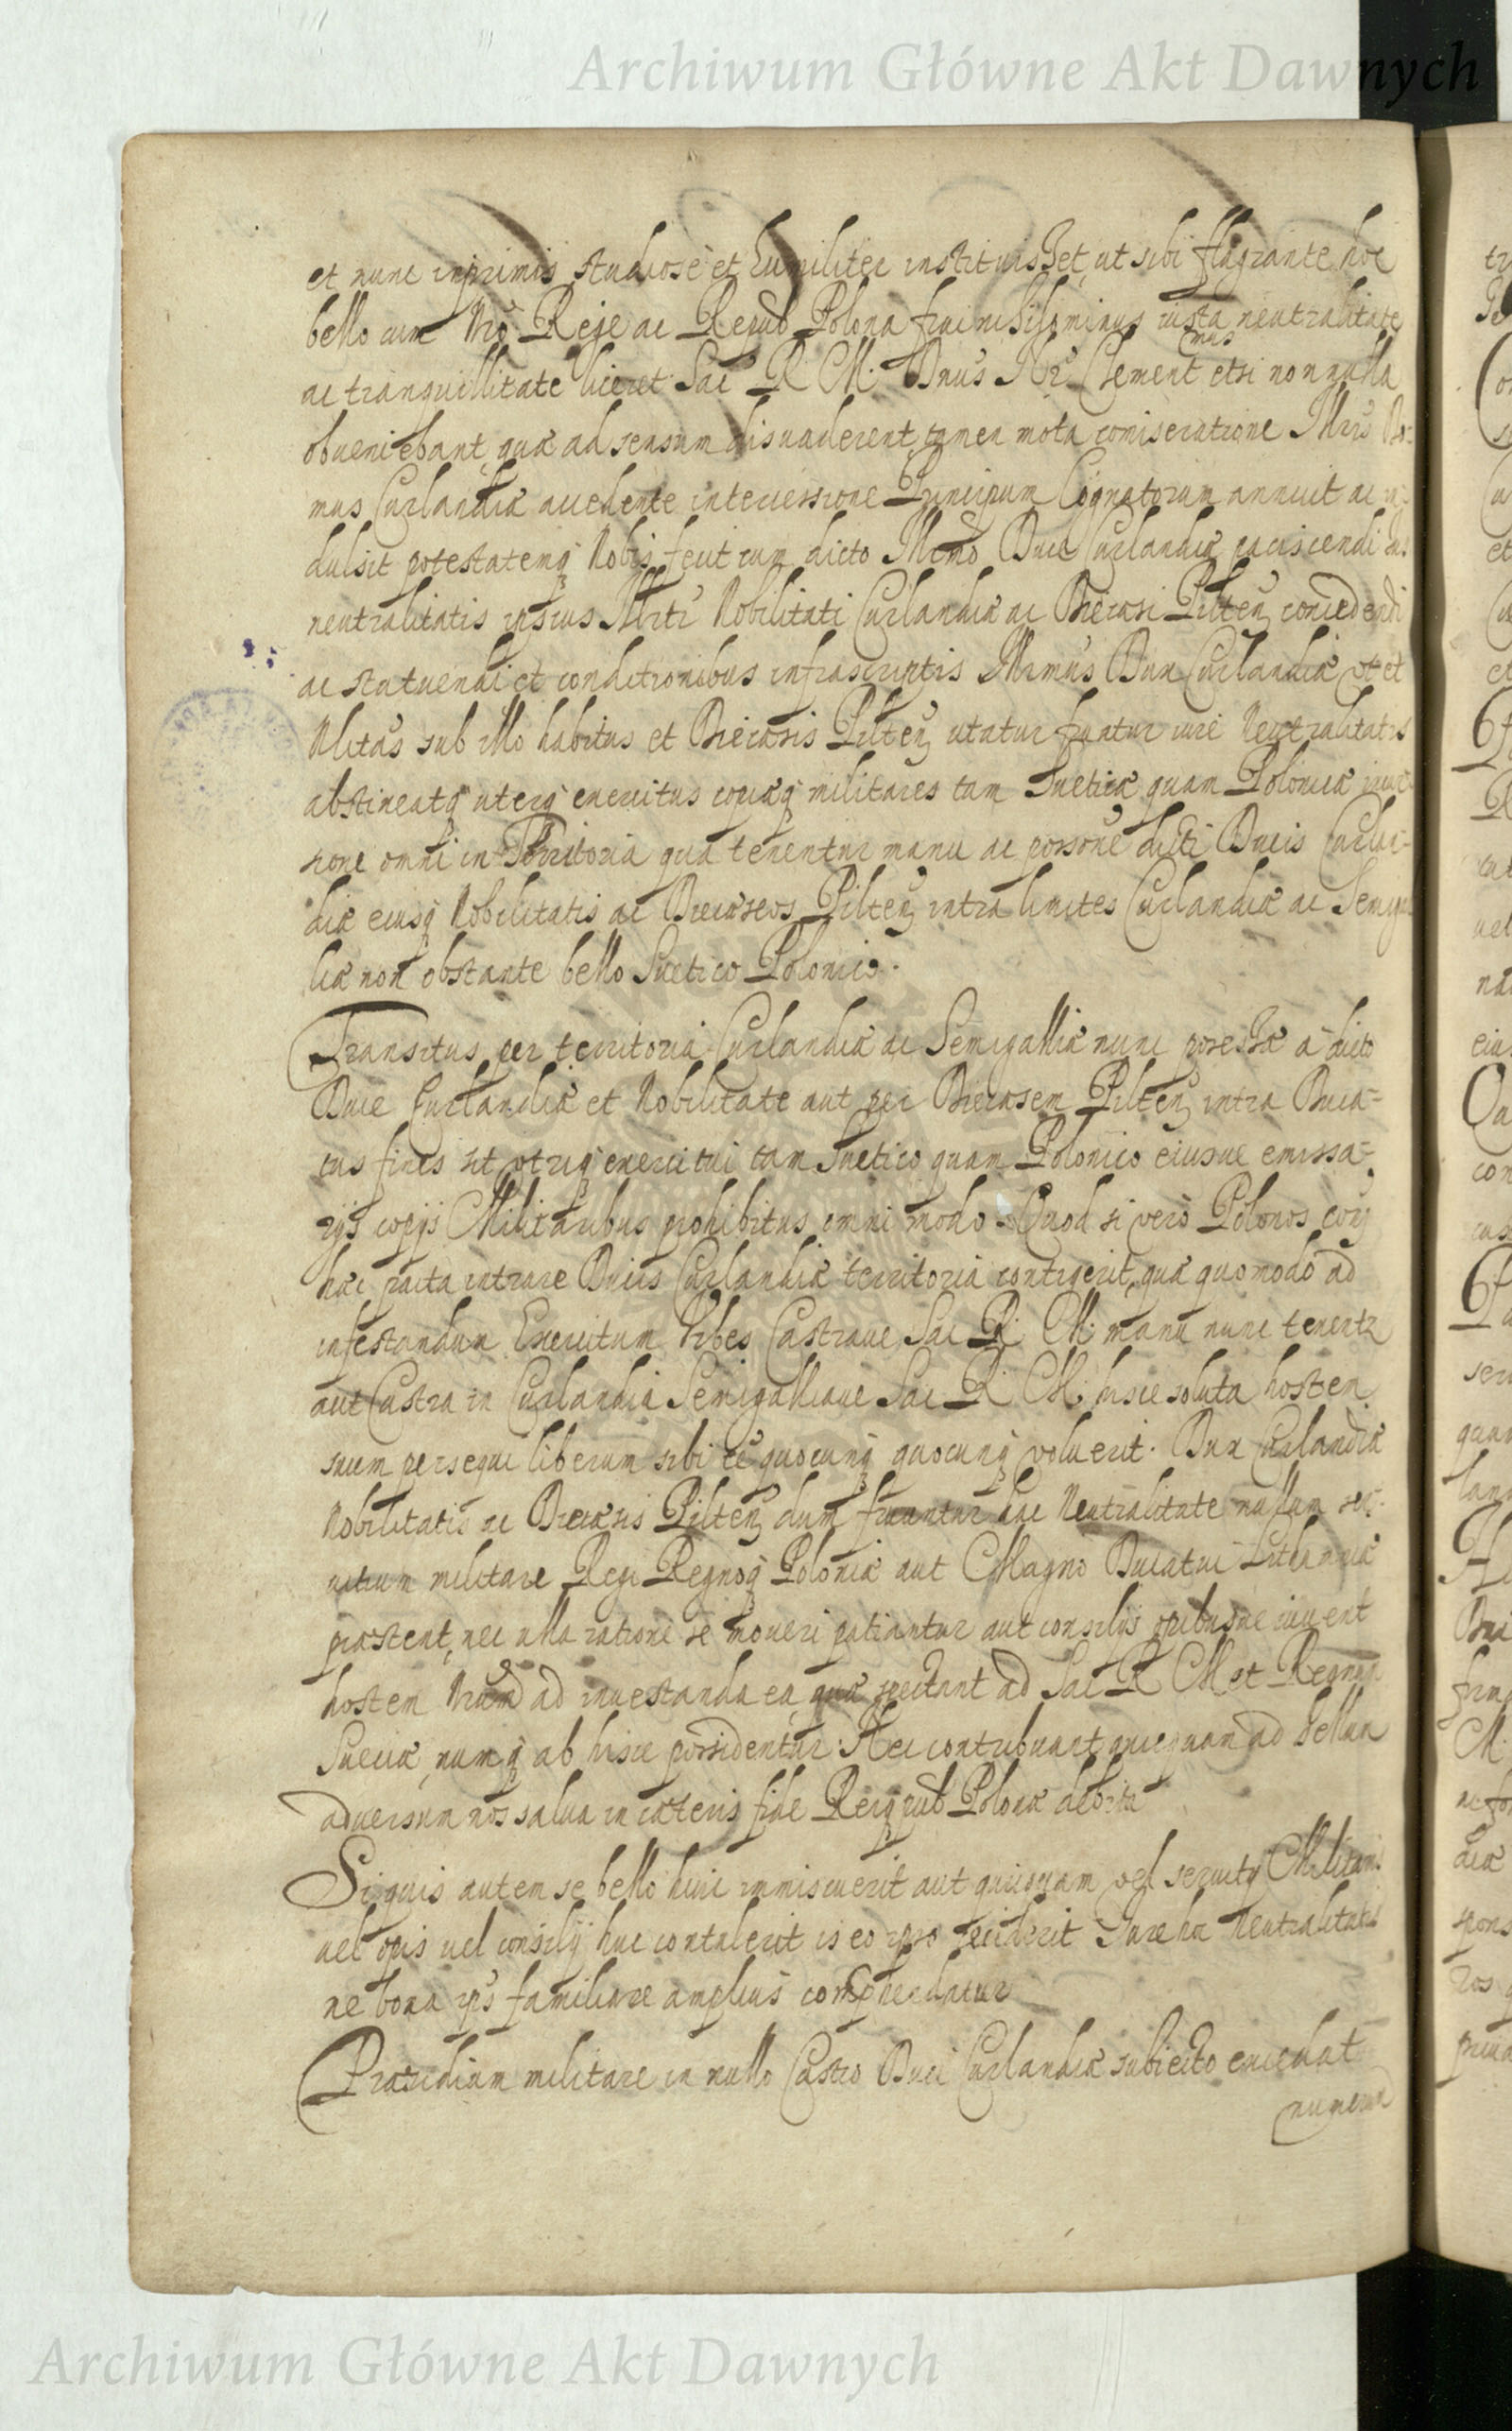 Archiwum Główne Akt Dawnych
et nunc inprimis studiose et humiliter instituisset, ut sibi flagrante hoc
bello cum Nrõ Rege ac Repub Polona frui nihilominus iusta neutralitate
ac tranquillitate liceret. Sac R. M. Dnus Nr Clement mus etsi nonnulla
obveniebant, quæ ad sensum disuaderent, tamen mota comiseratione Illris Do-
mus Curlandiæ accedente intercessione Principum Cognatorum annuit ac in-
dulsit potestatemq Nobis fecit cum dicto Illmo Duce Curlandiæ paciscendi
neutralitatis ipsius Nobilitati Curlandiæ ac Diecæsi Pilten concedendi
ac statuendi et conditionibus infrascriptis Illmus Dux Curlandiæ ut et
Nlitas sub illo habitus et Diecæsis Pilten utatur fruatur iure Neutralitatis
abstineatq uterq exercitus copiæq militares tam Sueticæ quam Polonicæ
sione omni in Territoria quæ tenentur manu ac dicti Ducis Curlan-
diæ eiusq Nobilitatis ac Diecæseos Pilten intra limites Curlandiæ ac Semiga
liæ non obstante bello Suetico Polonico.
Transitus per territoria Curlandiæ ac Semigalliæ nunc possessa a dicto
Duce Curlandiæ et Nobilitate aut per Diecæsem Pilten intra Duca-
tus fines sit utriq exercitui tam Suetico quam Polonico eiusue emissa-
rijs copijs Militaribus prohibitus omni modo. Quod si vero Polonos
hæc pacta intrare Ducis Curlandiæ territoria contigerit, quæ quomodo ad
infestandum Exercitum Urbes Castraue Sac R. M. manu nunc tenentr
aut Castra in Curlandia Semigalliaue Sac R. M. hisce soluta hostem
suum persequi liberum sibi quocunq quocunq voluerit. Dux Curlandiæ
Nobilitatis ac Diecæsis Pilten dum fruantur hac Neutralitate nullum ser-
uitium militare Regi Regnoq Poloniæ aut Magno Ducatui Lithuaniæ
præstent, nec ulla ratione se moueri patiantur aut consilijs opibusue iuuent
hostem ad inuestanda ea, quæ spectant ad Sac R M et Regnum
Sueciæ, nunq ab hisce possidentur. Nec contribuant quicquam ad bellum
aduersum nos salua in cæteris fide Reiq pub Polonæ debita
Si quis autem se bello huic immiscuerit aut quicquam vel seruity Militaris
uel opis uel consilij huc contulerit is eo ipso exciderit Jure hoc Neutralitatis
ne bona ips familiare amplius comprehendatur
Præsidium militare in nullo Castro Duci Curlandiæ subiecto excedat
numerum
Archiwum Główne Akt Dawnych